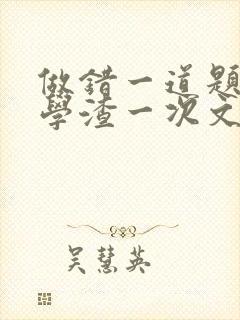 做錯一道題
學渣一次文
吳慧英